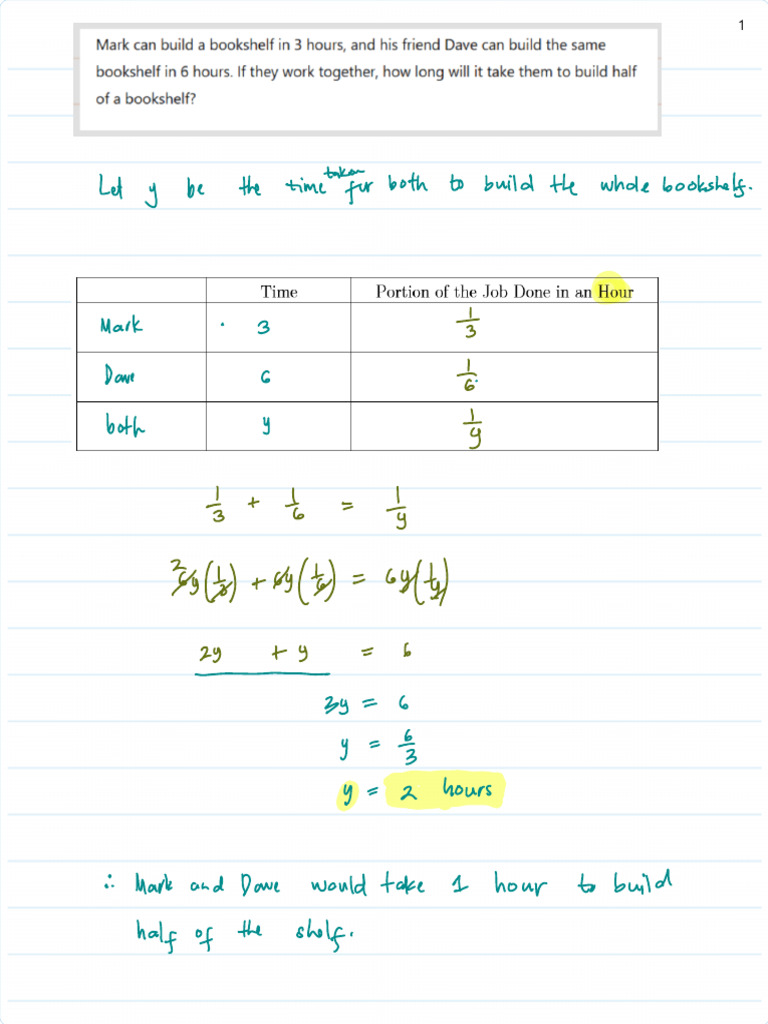 1
Mark can build a bookshelf in 3 hours, and his friend Dave can build the same
bookshelf in 6 hours. If they work together, how long will it take them to build half
of a bookshelf?
Let y be the time taken for both to build the whole bookshelf.
Time Portion of the Job Done in an Hour
Mark 3 1/3
Dave 6 1/6
both y 1/y
1/3 + 1/6 = 1/y
2 6y(1/3) + 6y(1/6) = 6y(1/y)
2y + y = 6
3y = 6
y = 6/3
y = 2 hours
∴ Mark and Dave would take 1 hour to build
half of the shelf.